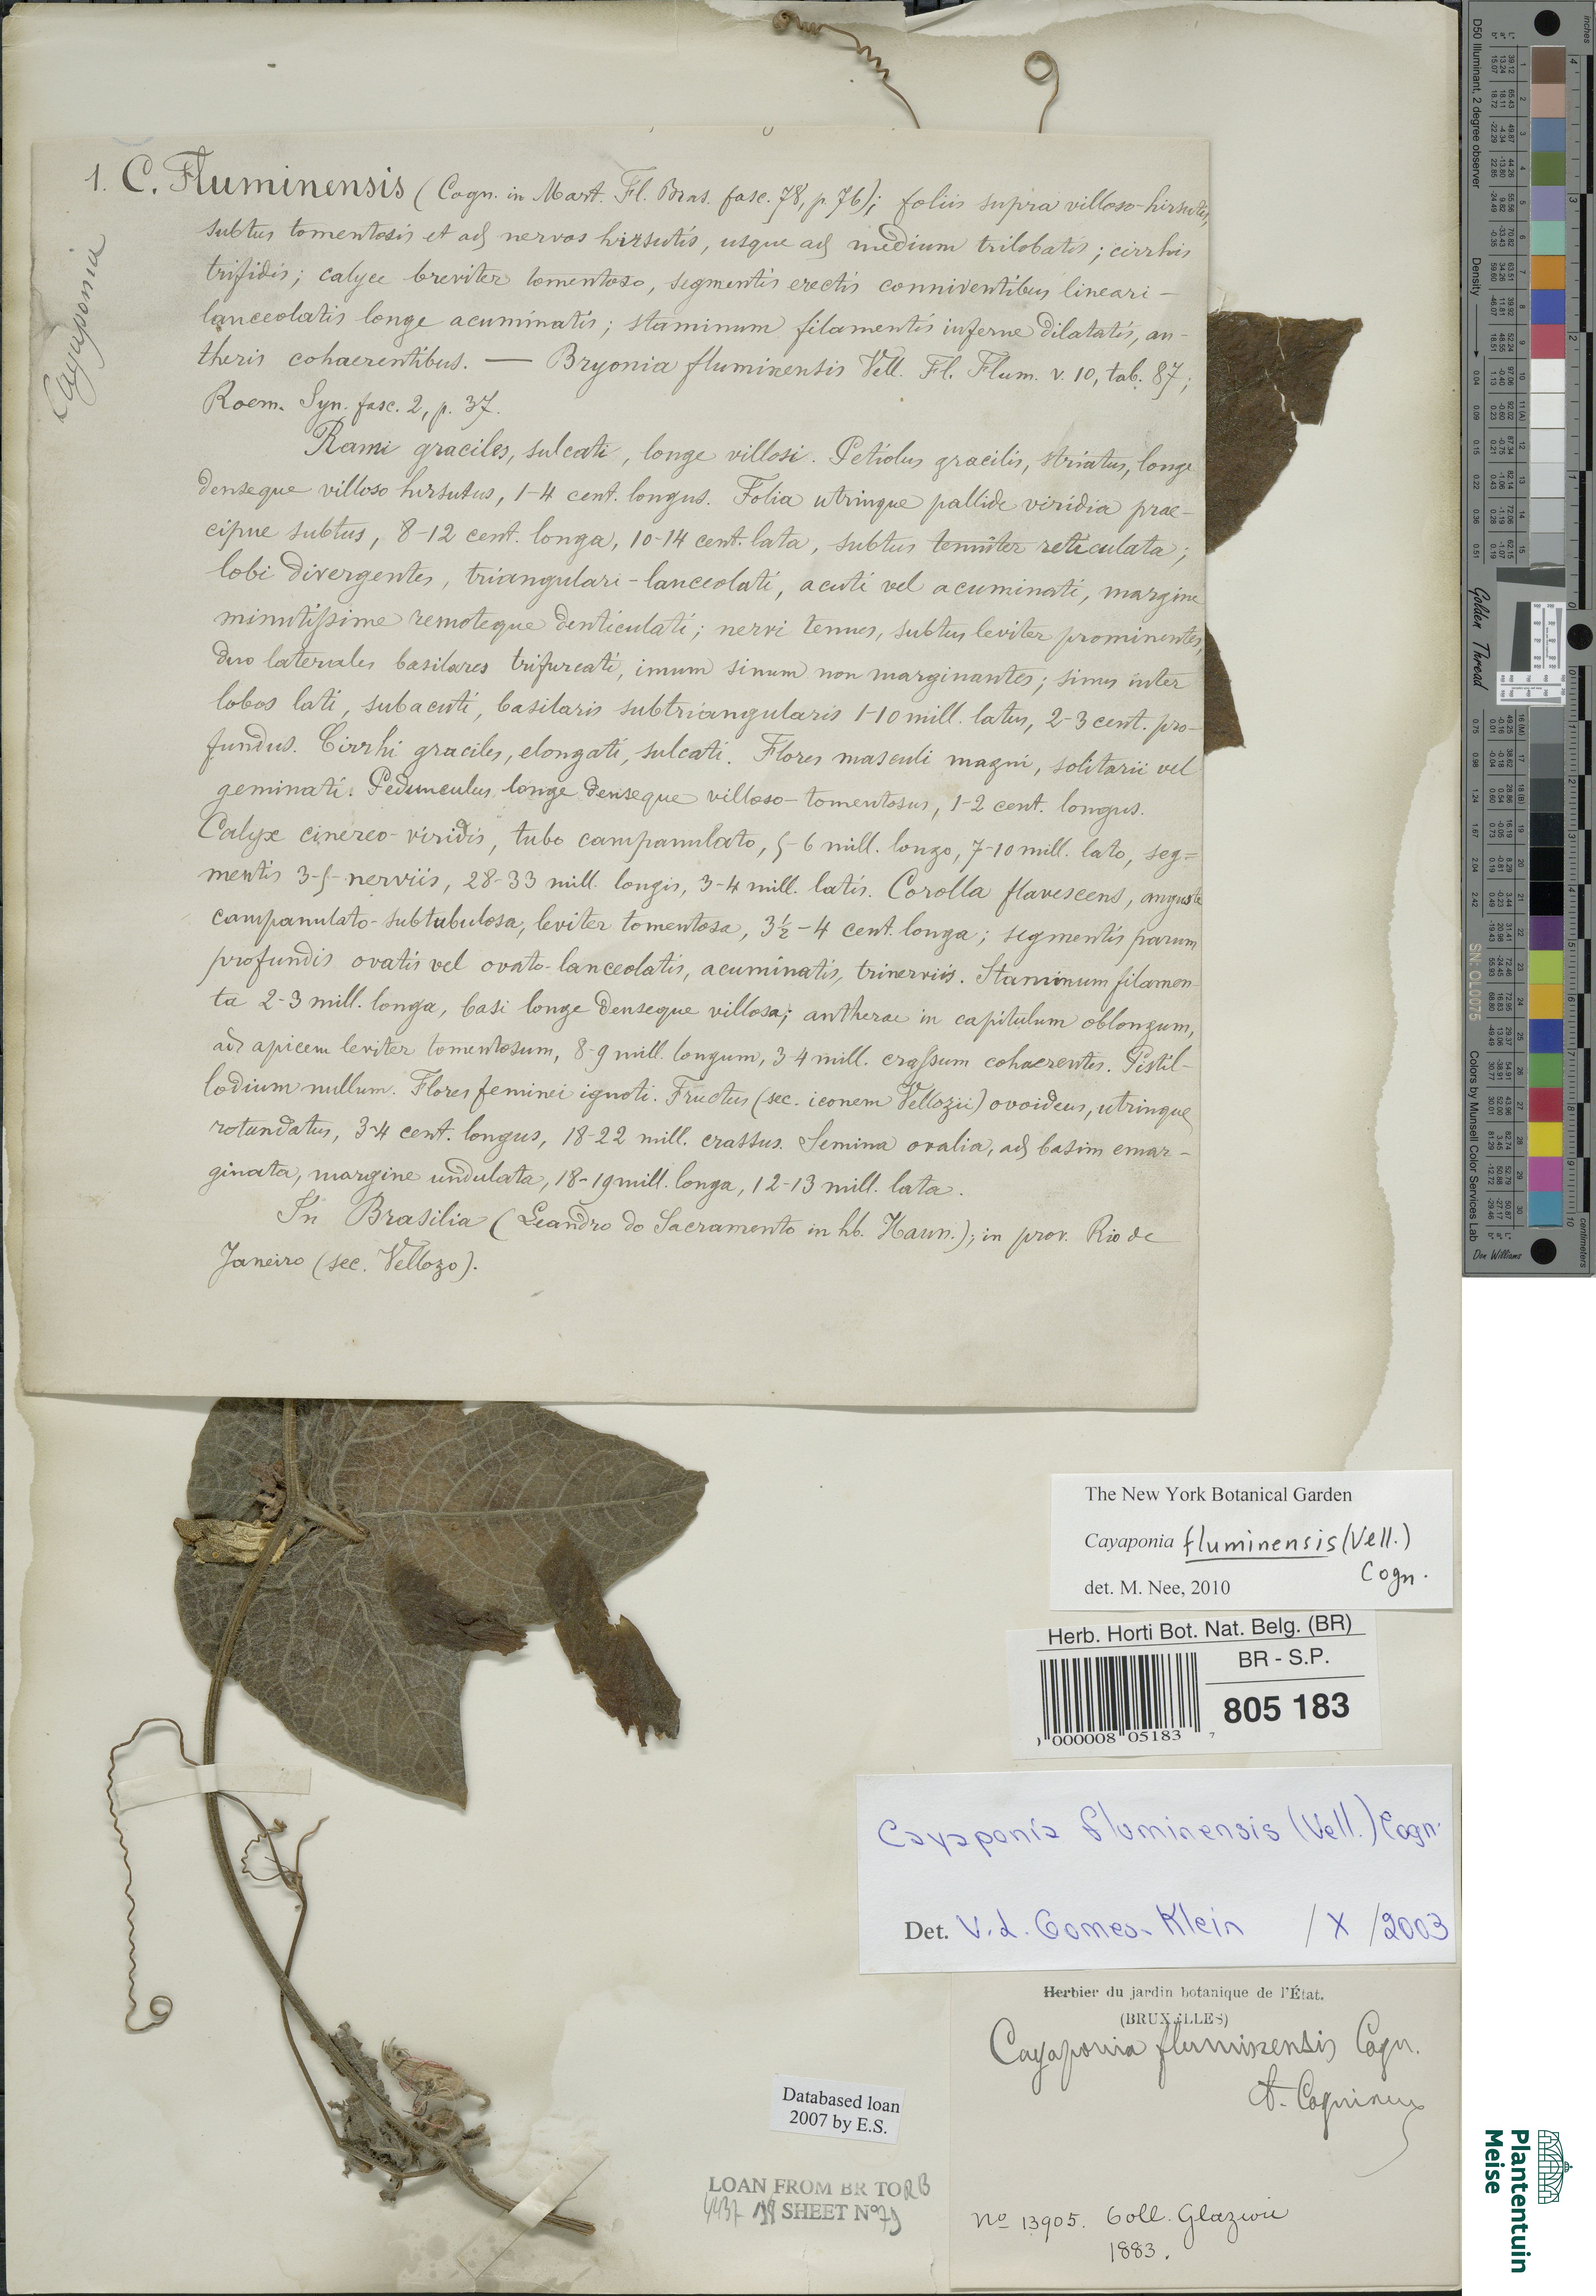 Cayaponia
1. C. Fluminensis (Cogn. in Mart. Fl. Bras. fasc. 78, p. 76); foliis supra villoso-hirsutis,
subtus tomentosis et ad nervos hirsutis, usque ad medium trilobatis; cirrhis
trifidis; calyce breviter tomentoso, segmentis erectis conniventibus lineari-
lanceolatis longe acuminatis; staminum filamentis inferne dilatatis, an-
theris cohaerentibus. — Bryonia fluminensis Vell. Fl. Flum. v. 10, tab. 87;
Roem. Syn. fasc. 2, p. 37.
Rami graciles, sulcati, longe villosi. Petiolus gracilis, striatus, longe
denseque villoso hirsutus, 1-4 cent. longus. Folia utrinque pallide viridia prae-
cipue subtus, 8-12 cent. longa, 10-14 cent. lata, subtus tenuiter reticulata;
lobi divergentes, triangulari-lanceolati, acuti vel acuminati, margine
minutissime remoteque denticulati; nervi tenues, subtus leviter prominentes,
duo laterales basilares trifurcati, imum sinum non marginantes; sinus inter
lobos lati, subacuti, basilaris subtriangularis 1-10 mill. latus, 2-3 cent. pro-
fundus. Cirrhi graciles, elongati, sulcati. Flores masculi magni, solitarii vel
geminati. Pedunculus longe denseque villoso-tomentosus, 1-2 cent. longus.
Calyx cinereo-viridis, tubo campanulato, 5-6 mill. longo, 7-10 mill. lato, seg=
mentis 3-5-nerviis, 28-33 mill. longis, 3-4 mill. latis. Corolla flavescens, anguste
campanulato-subtubulosa, leviter tomentosa, 3½-4 cent. longa; segmentis parum
profundis ovatis vel ovato-lanceolatis, acuminatis, trinerviis. Staminum filamen-
ta 2-3 mill. longa, basi longe denseque villosa; antherae in capitulum oblongum,
ad apicem leviter tomentosum, 8-9 mill. longum, 3-4 mill. crassum cohaerentes. Pistil-
lodium nullum. Flores feminei ignoti. Fructus (sec. iconem Vellozii) ovoideus, utrinque
rotundatus, 3-4 cent. longus, 18-22 mill. crassus. Semina ovalia, ad basim emar-
ginata, margine undulata, 18-19 mill. longa, 12-13 mill. lata.
In Brasilia (Leandro do Sacramento in hb. Haun.); in prov. Rio de
Janeiro (sec. Vellozo).
The New York Botanical Garden
Cayaponia fluminensis (Vell.)
Cogn.
det. M. Nee, 2010
Herb. Horti Bot. Nat. Belg. (BR)
BR - S.P.
805 183
000008 05183 7
Cayaponia fluminensis (Vell.) Cogn.
Det. V.L. Gomes-Klein / X /2003
Herbier du jardin botanique de l'État.
(BRUXELLES)
Cayaponia fluminensis Cogn.
A. Cogniaux
No 13905. Coll. Glaziou
1883.
Databased loan
2007 by E.S.
LOAN FROM BR TO RB
SHEET No 79
inches
centimeters
D50 Illuminant, 2 degree observer
Density
Golden Thread
SN: OL0075
Colors by Munsell Color Services Lab
Don Williams
Plantentuin
Meise